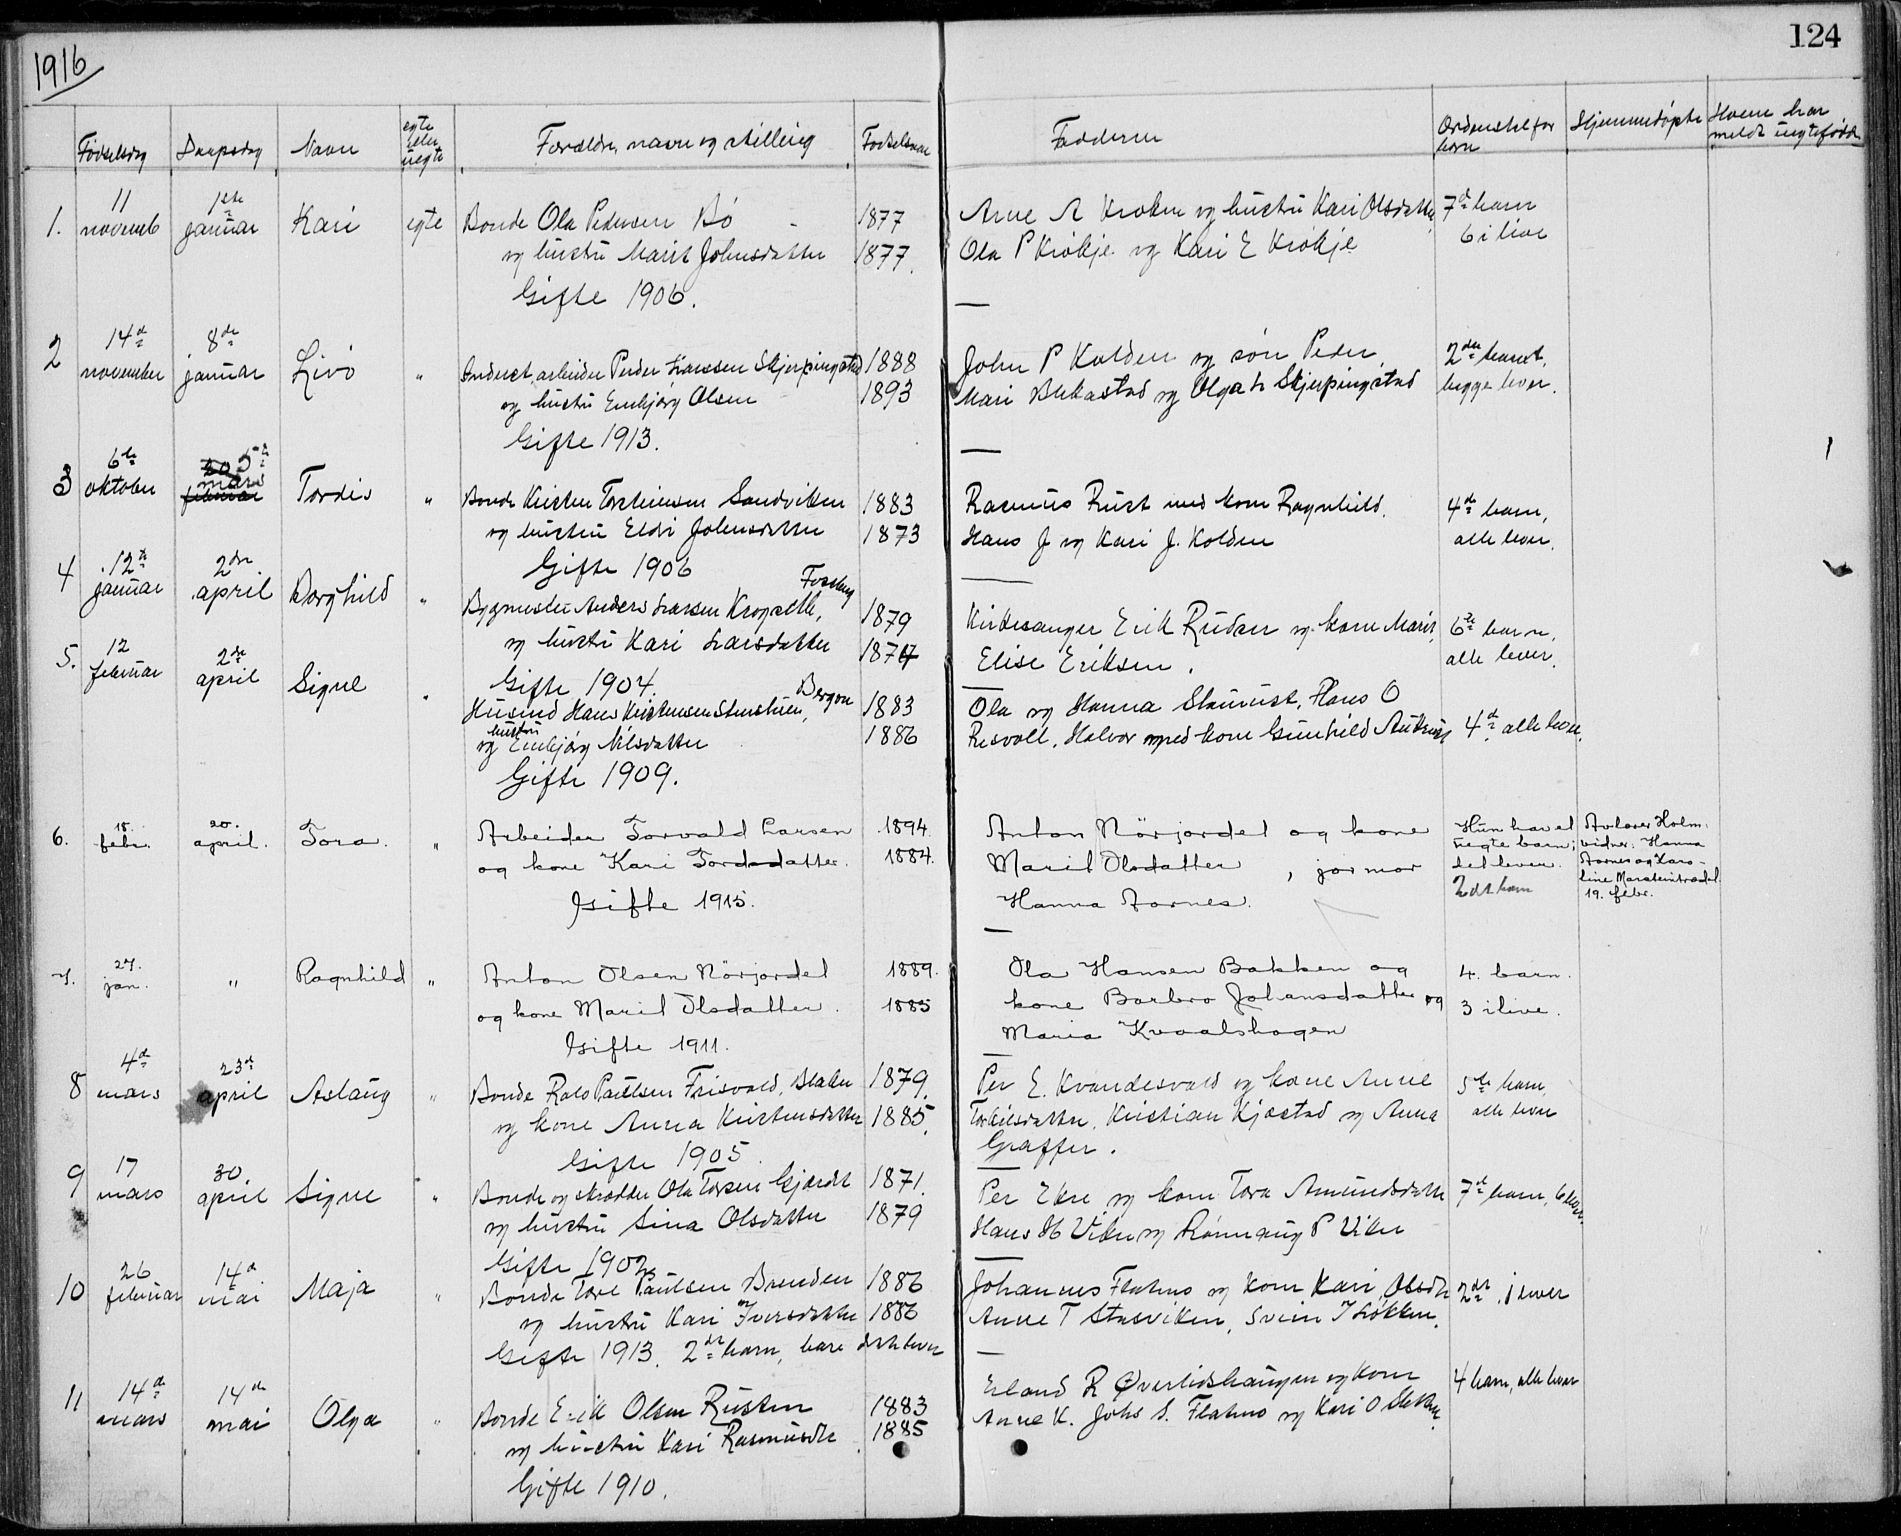 1916
124
Fødselsdag Daapsdag Navn egte eller uegte Forældre, navn og stilling Fødselsaar Fadderne Ordenstal for barn Hjemmedøpte Hvem har meldt uegtefødte
1. 11 novemb 1ste januar Kari egte Bonde Ola Pedersen Bö 1877 Arne A Kroken og hustru Kari Olsdatter 7d barn
og hustru Marit Johnsdatter 1877. Ola P Krökje og Kari E Krökje 6 i live
Gifte 1906.
2 14d november 8de januar Livö " arbeider Peder Hanssen Skjerpingstad 1888 John P Kolden og sön Peder, 2det barnet,
og hustru Embjörg Olsen 1893 Mari Blekastad og Olga H Skjerpingstad begge lever.
Gifte 1913.
3 6te oktober 20 februar 5te mars Tordis " Bonde Kristen Torsteinsen Sandviken 1883 Rasmus Rust med kone Ragnhild. 4d barn,
og hustru Eldri Johnsdatter 1873 Hans J og Kari J. Kolden alle lever.
Gifte 1906
4 12te januar 2den april Borghild " Bygmester Anders Larsen Krogseth, Fosberg 1879 Kirkesanger Erik Rudaa og kone Marit, 6te barn,
og hustru Kari Larsdatter 1877 Elise Eriksen. alle lever.
Gifte 1904.
5. 12 februar 2den april Signe " Husmd Hans Kristensen Stenstuen, Bergom 1883 Ola og Hanna Slaamust, Hans O
og hustru Embjörg Nilsdatter 1886 Risvoll, Halvor med kone Gunhild 4d alle lever.
Gifte 1909.
6. 18. febr. 20. april. Tora. " Arbeider Torvald Larsen 1894. Anton Nörjordet og kone Hun har et
og kone Kari Tordsdatter. 1884. Marit Olsdatter, jormor uegte barn; det lever. 2det barn
Gifte 1915. Hanna Aarnes. Holm. vidner. Hanna Aarnes og Karoline 19. febr.
7. 27. jan. " Ragnhild " Anton Olsen Nörjordet 1889. Ola Hansen Bakken og 4. barn.
og kone Marit Olsdatter. 1885 kone Barbro Johansdatter og 3 ilive.
Gifte 1911. Maria Kvaalshagen
8 4d mars 23d april Aslaug " Bonde Rolv Paulsen Frisvold, Blaker 1879. Per E. Kvandesvold og kone Anne 5te barn,
og kone Anna Kristensdatter 1885. Torkilsdatter, Kristian Kjæstad og Anna alle lever
Gifte 1905. Graffer.
9 17 mars 30 april Signe " Bonde og skrædder Ola Torsen Gjærdet 1871. Per Ekre og kone Tora Amundsdatter 7d barn, 6 lever.
og hustru Sina Olsdatter 1879 Hans H Viken og Rönnaug P Viken
Gifte 1902
10 26 februar 14d mai Maja " Bonde Tore Paulsen Brenden 1886 Johannes Flatmo og kone Kari Olsdtr 2det, 1 lever
og hustru Kari Iversdatter 1886 Anne T Stasviken, Svein T Lökken.
Gifte 1913. 2det barn, bare dette lever
11 14d mars 14de mai Olga " Bonde Erik Olsen Rusten 1883 Erland R Øverlidshaugen og kone 4 barn, alle lever
og hustru Kari Rasmusdtr 1885 Anne K. Johs S. Flatmo og Kari O
Gifte 1910.